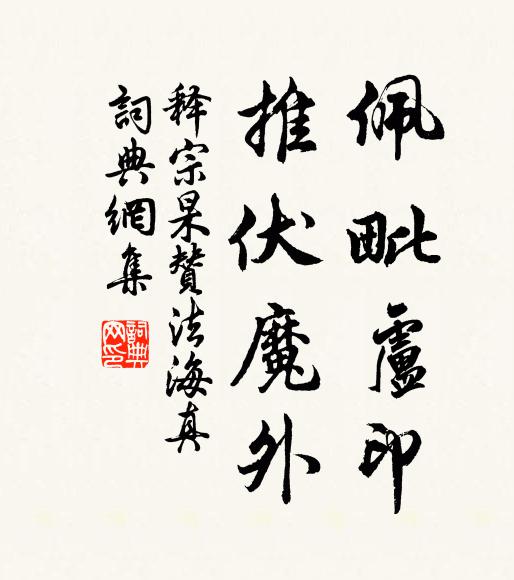 佩毗盧印
推伏魔外
释宗杲赞法海真
詞典網集
詞典網印